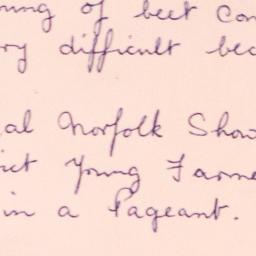 ning of beet con
ry difficult bec
al Norfolk Show
ict Young Farme
in a Pageant.